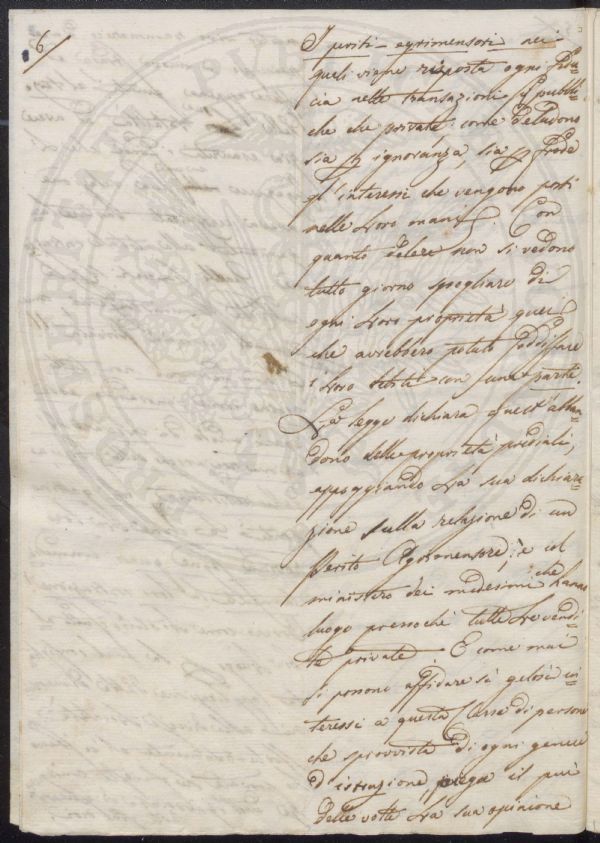 6
I periti - agrimensori nei
queli viene risposta ogni fidu=
cia nelle transazioni sì pubbli=
che che private: come deludono
sia p ignoranza, sia p frode
gl'interessi che vengono posti
nelle Loro mani? Con
quanto dolore non si vedono
tutto giorno spogliare di
ogni Loro proprietà quei
che avrebbero potuto soddisfare
i Loro debiti con una parte.
La legge dichiara quest'abban
dono delle proprietà prediali,
appoggiando La sua dichiara=
zione sulla relazione di un
Perito Agrimensore; e col
ministero dei medesimi che hanno
luogo pressochè tutte Le vendi=
te private - E come mai
si possono affidare sì gelosi in=
teressi a questa Classe di persone
che sprovvista di ogni genere
d'istruzione, piega il più
delle volte La sua opinione